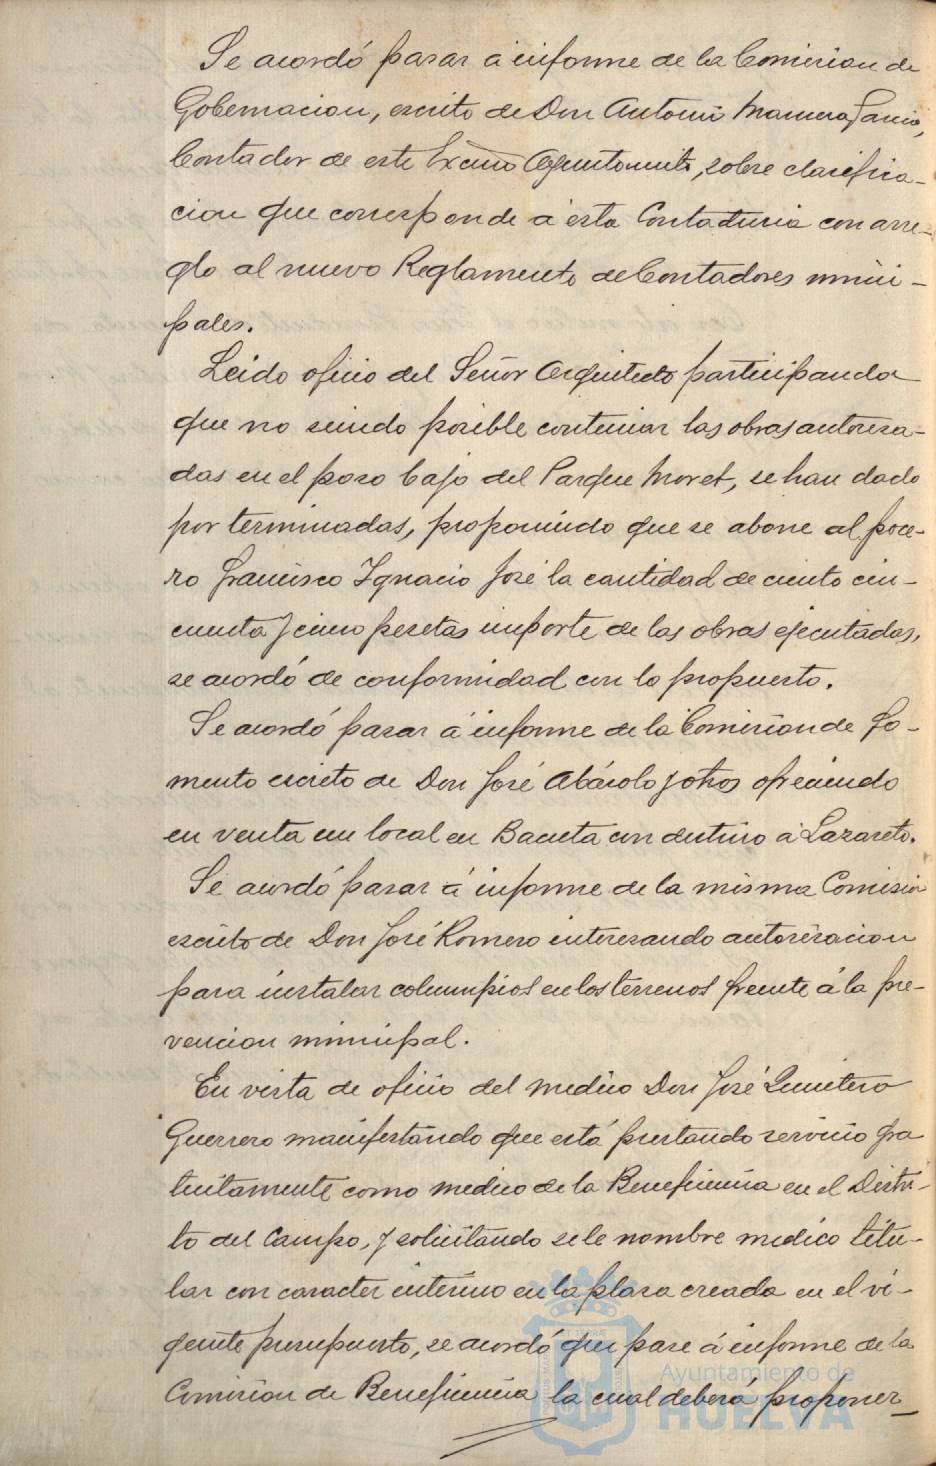 Se acordó pasar á informe de la Comision de
Gobernacion, escrito de Don Antonio Mamera Garcia,
Contador de este Excmo Ayuntamito, sobre clasifica-
cion que corresponde á esta Contaduria con arre-
glo al nuevo Reglamento de Contadores munici-
pales.
Leido oficio del Señor Arquitecto participando
que no siendo posible continuar las obras autoriza-
das en el pozo bajo del Parque Moret, se han dado
por terminadas, proponiendo que se abone al poce-
ro Francisco Ignacio José la cantidad de ciento cin-
cuenta y cinco pesetas importe de las obras ejecutadas,
se acordó de conformidad con lo propuesto.
Se acordó pasar á informe de la Comision de Fo-
mento escrito de Don José y otros ofreciendo
en venta un local en Bacuta con destino á Lazareto.
Se acordó pasar á informe de la misma Comision
escrito de Don José Romero interesando autorizacion
para instalar columpios en los terrenos frente á la pre-
vencion municipal.
En vista de oficio del medico Don José Quintero
Guerrero manifestando que está prestando servicio gra
tuitamente como medico de la Beneficencia en el Distri-
to del Campo, y solicitando se le nombre medico titu-
lar con caracter interino en la plaza creada en el vi-
gente presupuesto, se acordó que pase á informe de la
Comision de Beneficencia la cual deberá proponer
Ayuntamiento de
HUELVA